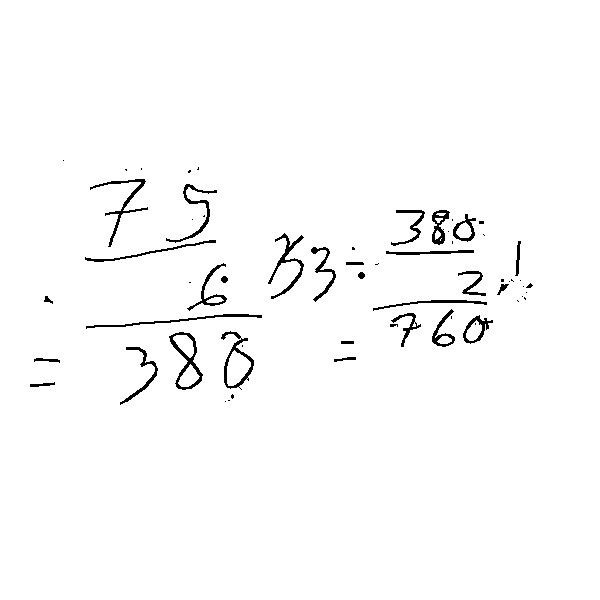 75
6
= 380
53 ÷
380
2
= 760